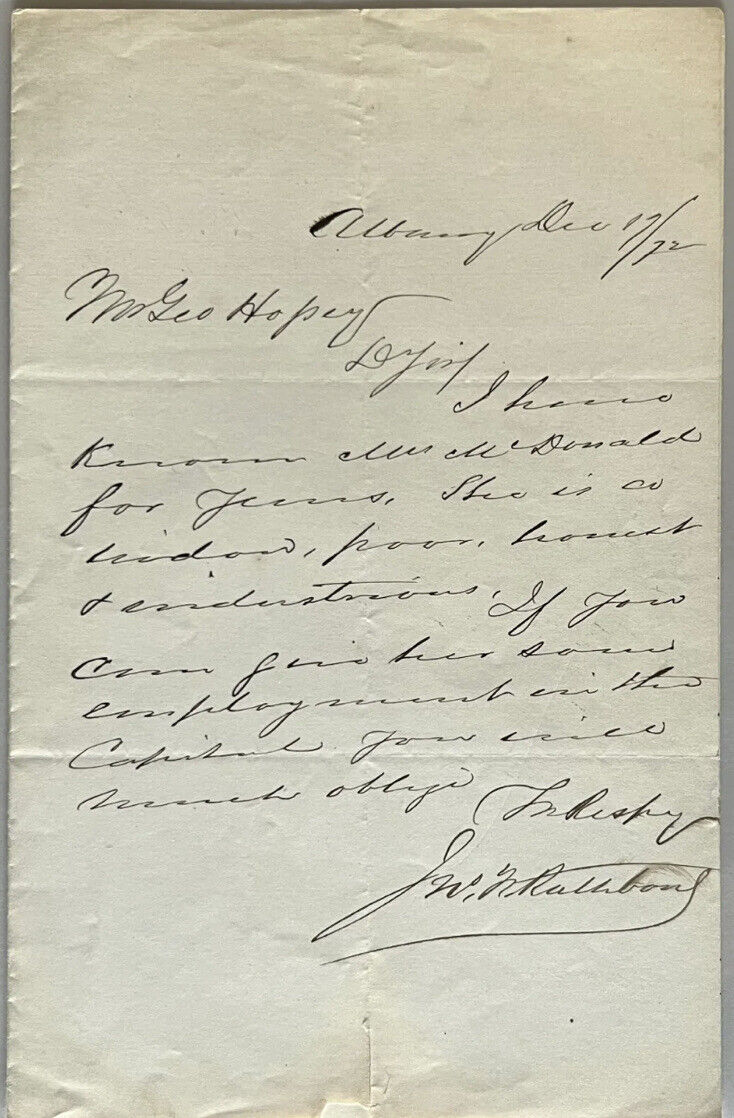 Albany Dec 17/72
Mr Geo Hopey
D Sir
I have
known Mrs McDonald
for years. She is a
widow, poor, honest
& industrious. If you
can give her some
employment in the
Capitol you will
much oblige
Yrs Respy
Jno. F. Rathbone